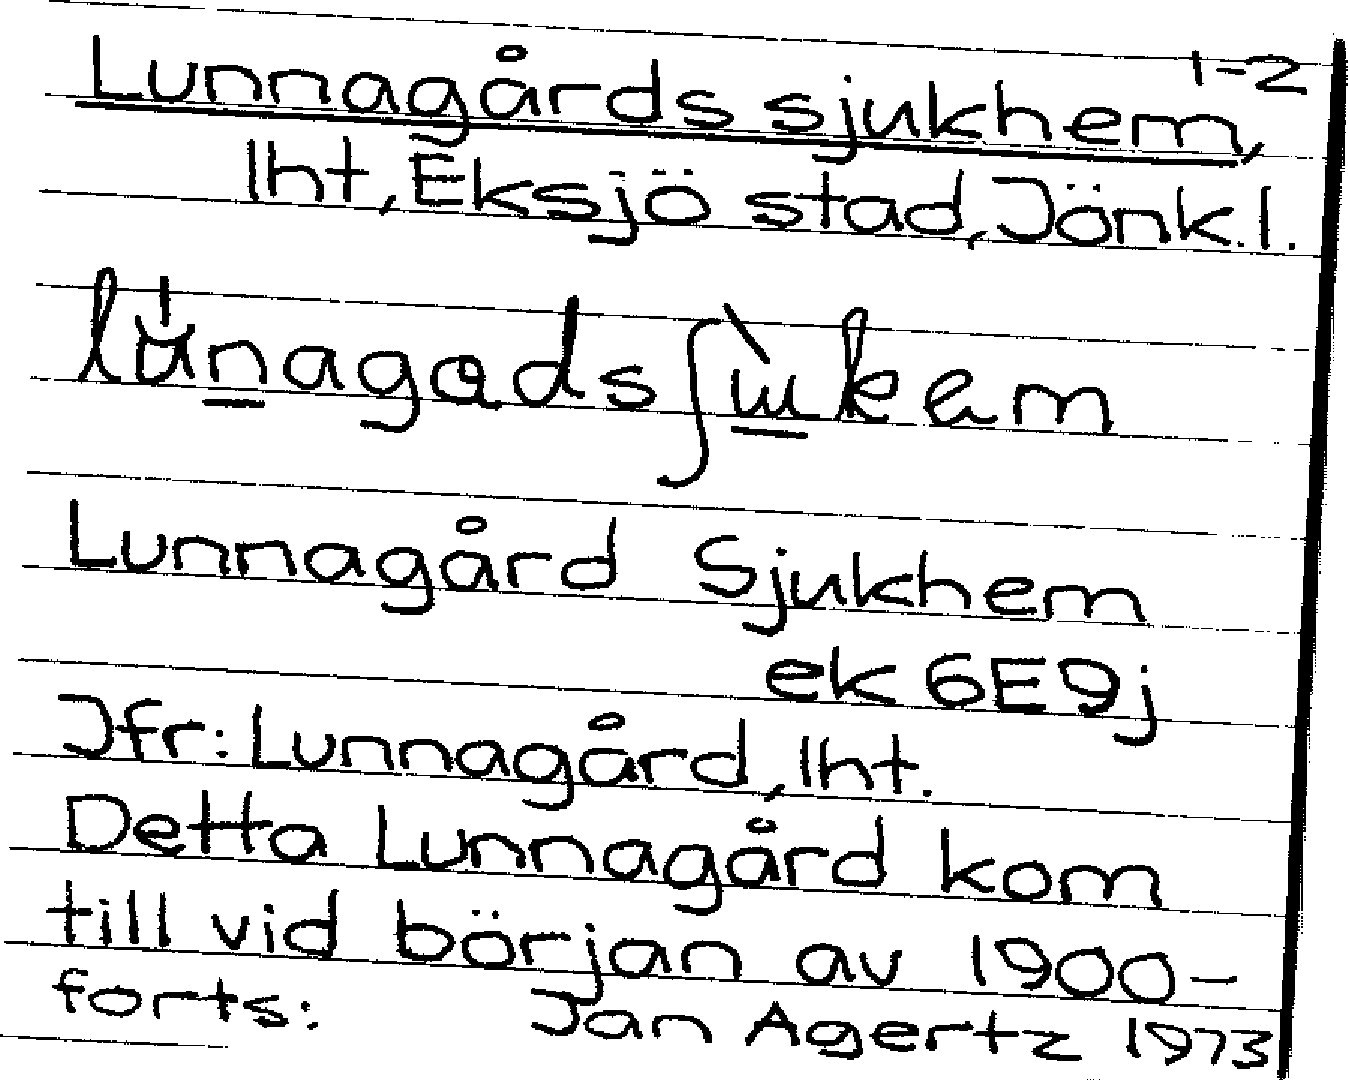 1-2
Lunnagårds sjukhem,
lht, Eksjö stad, Jönk.l.
Lunnagård Sjukhem
ek 6E9j
Jfr: Lunnagård, lht.
Detta Lunnagård kom
till vid början av 1900-
forts: Jan Agertz 1973